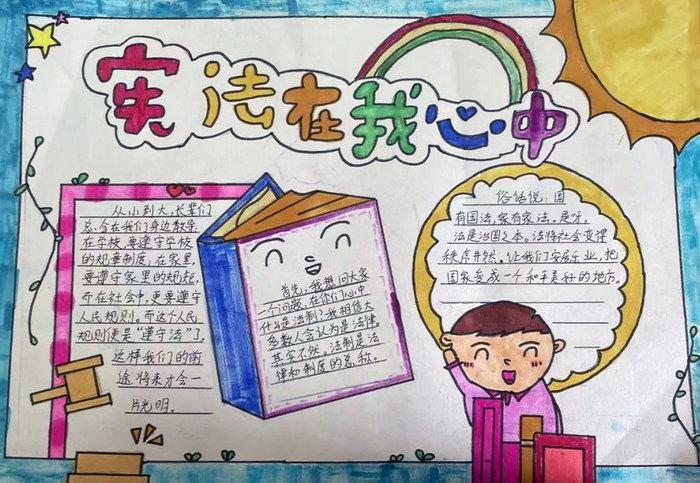 宪法在我心中
从小到大，长辈们
总会在我们身边教导
在学校，要遵守学校
的规章制度，在家里，
要遵守家里的规矩，
而在社会中，更要遵守
人民规则。而这个人民
规则便是“遵守法”了，
这样我们的前
途将来才会一
片光明。
首先，我想问大家
一个问题，在你们心中
什么是法制？我相信大
多数人会认为是法律。
其实不然。法制是法
律和制度的总称。
俗话说：国
有国法，家有家法。是呀，
法是治国之本。法将社会变得
秩序井然。让我们安居乐业，把
国家变成一个和平美好的地方。